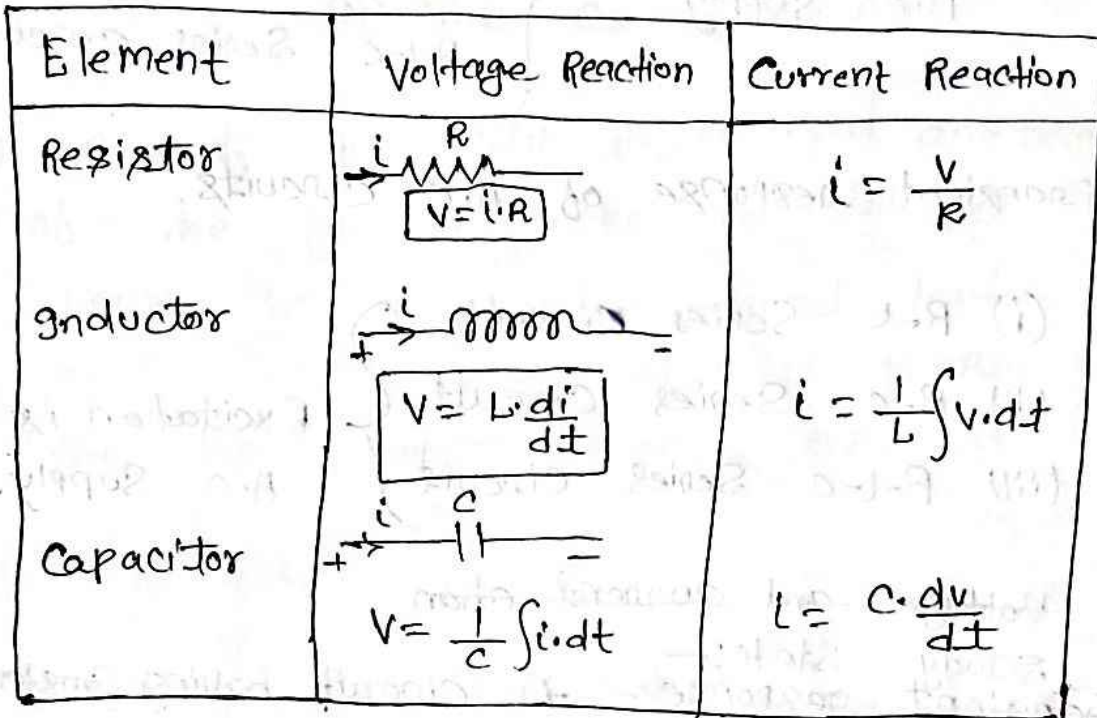 Element Voltage Reaction Current Reaction
Resistor i R i = V/R
V = i·R
Inductor i
+ -
V = L·di/dt i = 1/L ∫v·dt
Capacitor i C
+ -
V = 1/C ∫i·dt i = C·dv/dt